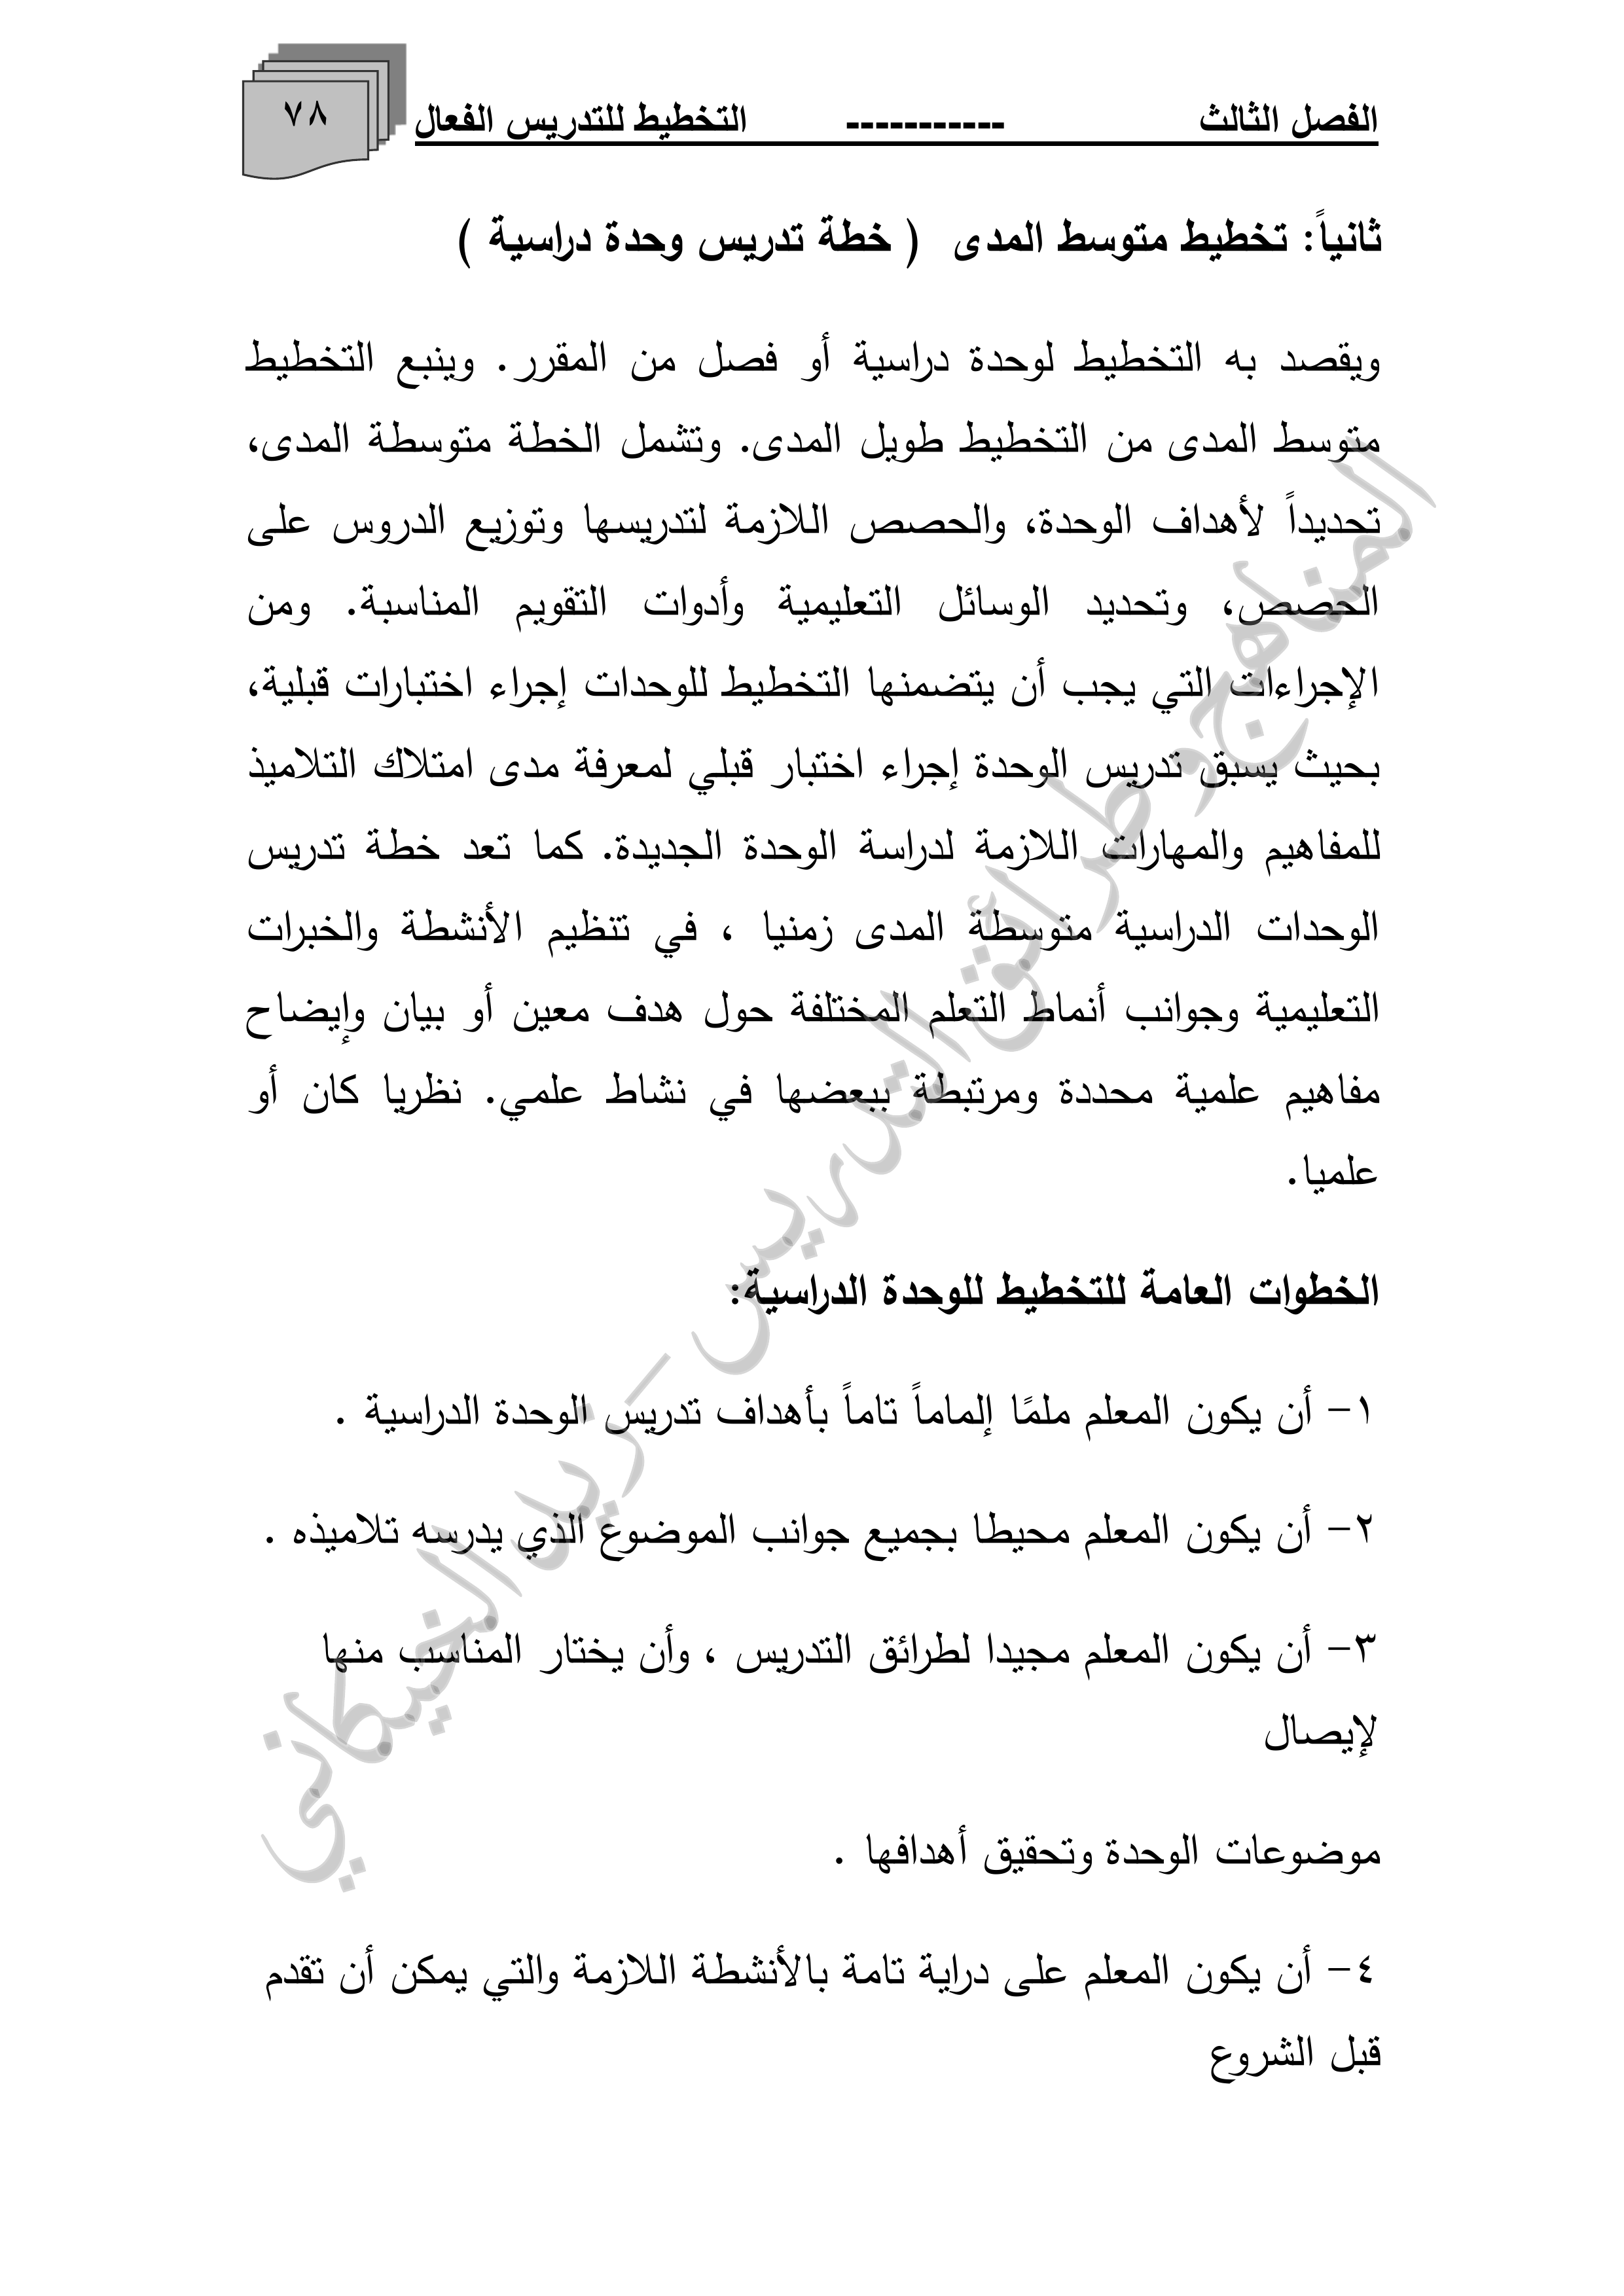 الفصل الثالث ----------- التخطيط للتدريس الفعال
٧٨
ثانياً: تخطيط متوسط المدى ( خطة تدريس وحدة دراسية )
ويقصد به التخطيط لوحدة دراسية أو فصل من المقرر. وينبع التخطيط
متوسط المدى من التخطيط طويل المدى. وتشمل الخطة متوسطة المدى،
تحديداً لأهداف الوحدة، والحصص اللازمة لتدريسها وتوزيع الدروس على
الحصص، وتحديد الوسائل التعليمية وأدوات التقويم المناسبة. ومن
الإجراءات التي يجب أن يتضمنها التخطيط للوحدات إجراء اختبارات قبلية،
بحيث يسبق تدريس الوحدة إجراء اختبار قبلي لمعرفة مدى امتلاك التلاميذ
للمفاهيم والمهارات اللازمة لدراسة الوحدة الجديدة. كما تعد خطة تدريس
الوحدات الدراسية متوسطة المدى زمنيا ، في تنظيم الأنشطة والخبرات
التعليمية وجوانب أنماط التعلم المختلفة حول هدف معين أو بيان وإيضاح
مفاهيم علمية محددة ومرتبطة ببعضها في نشاط علمي. نظريا كان أو
علميا.
الخطوات العامة للتخطيط للوحدة الدراسية:
١- أن يكون المعلم ملمًا إلماماً تاماً بأهداف تدريس الوحدة الدراسية .
٢- أن يكون المعلم محيطا بجميع جوانب الموضوع الذي يدرسه تلاميذه .
٣- أن يكون المعلم مجيدا لطرائق التدريس ، وأن يختار المناسب منها
لإيصال
موضوعات الوحدة وتحقيق أهدافها .
٤- أن يكون المعلم على دراية تامة بالأنشطة اللازمة والتي يمكن أن تقدم
قبل الشروع
المناهج وطرائق التدريس - زيد الخيكاني